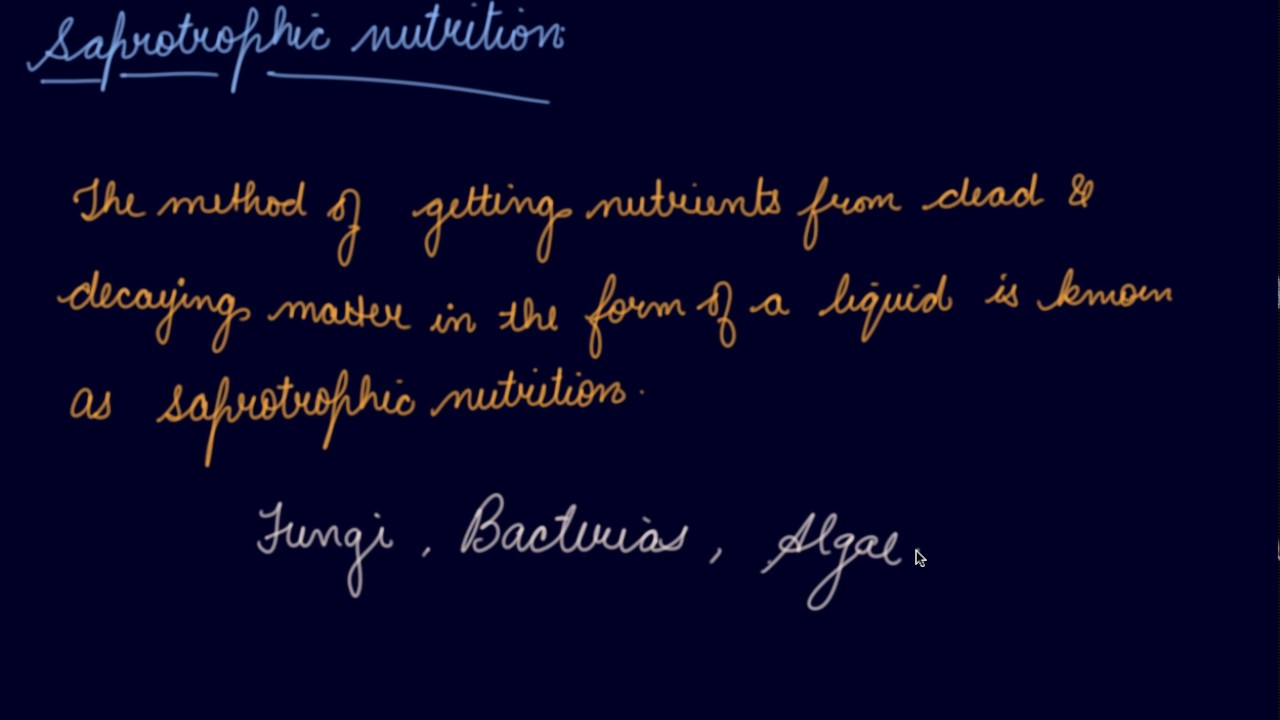 Saprotrophic nutrition
The method of getting nutrients from dead &
decaying matter in the form of a liquid is known
as saprotrophic nutrition.
Fungi, Bacterias, Algae